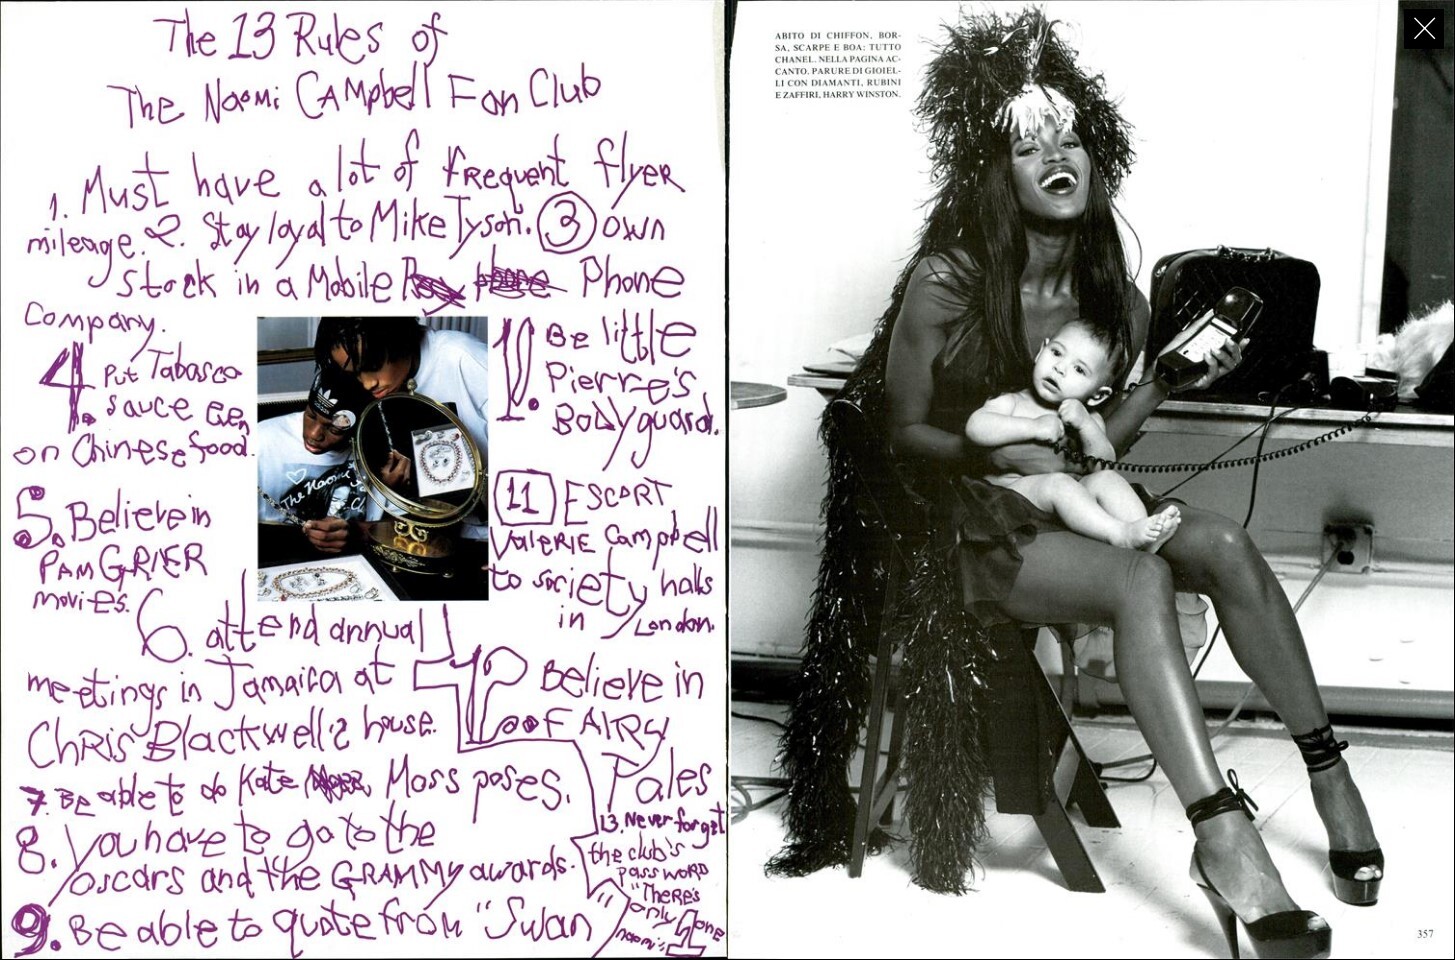 The 13 Rules of
The Naomi Campbell Fan Club
1. Must have a lot of frequent flyer
mileage. 2. Stay loyal to Mike Tyson. 3 own
stock in a Mobile Phone
Company.
4. Put Tabasco
sauce even
on Chinese food.
5. Believe in
PAM GRIER
movies.
6. attend annual
meetings in Jamaica at
Chris Blackwell's house.
7. Be able to do Kate Moss poses.
8. You have to go to the
oscars and the GRAMMy awards.
9. Be able to quote from "Swan"
10. Be little
Pierre's
Bodyguard.
11 ESCORT
Valerie Campbell
to society halls
in London.
12 Believe in
FAIRy
Tales
13. Never forget
the club's
password
"There's
only 1 one
naomi"
The Naomi
ABITO DI CHIFFON, BOR-
SA, SCARPE E BOA: TUTTO
CHANEL. NELLA PAGINA AC-
CANTO. PARURE DI GIOIEL-
LI CON DIAMANTI, RUBINI
E ZAFFIRI, HARRY WINSTON.
357